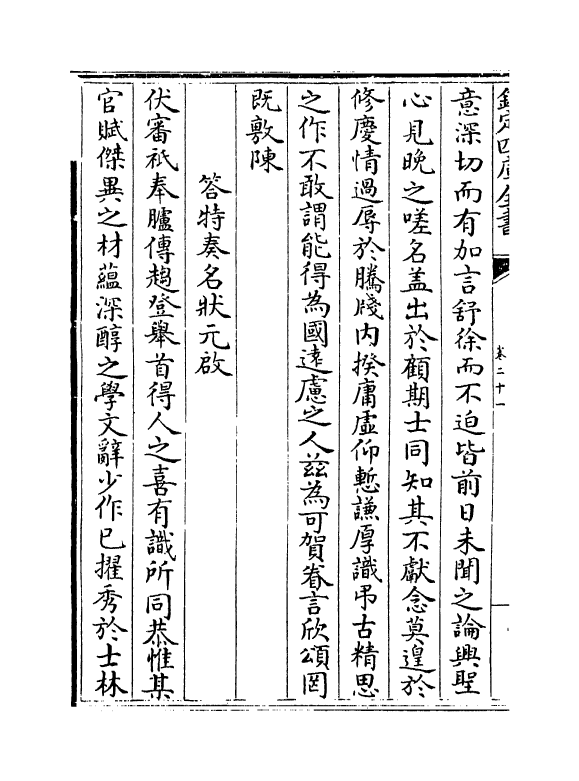 欽定四庫全書
卷二十一
意深切而有加言舒徐而不迫皆前日未聞之論興聖
心見晚之嗟名盖出於顧期士同知其不獻念莫遑於
修慶情過辱於騰牋内揆庸虚仰慙謙厚識弔古精思
之作不敢謂能得為國遠慮之人兹為可賀眷言欣頌罔
既敷陳
答特奏名狀元啟
伏審祗奉臚傳趨登舉首得人之喜有識所同恭惟其
官賦傑異之材藴深醇之學文辭少作已擢秀於士林